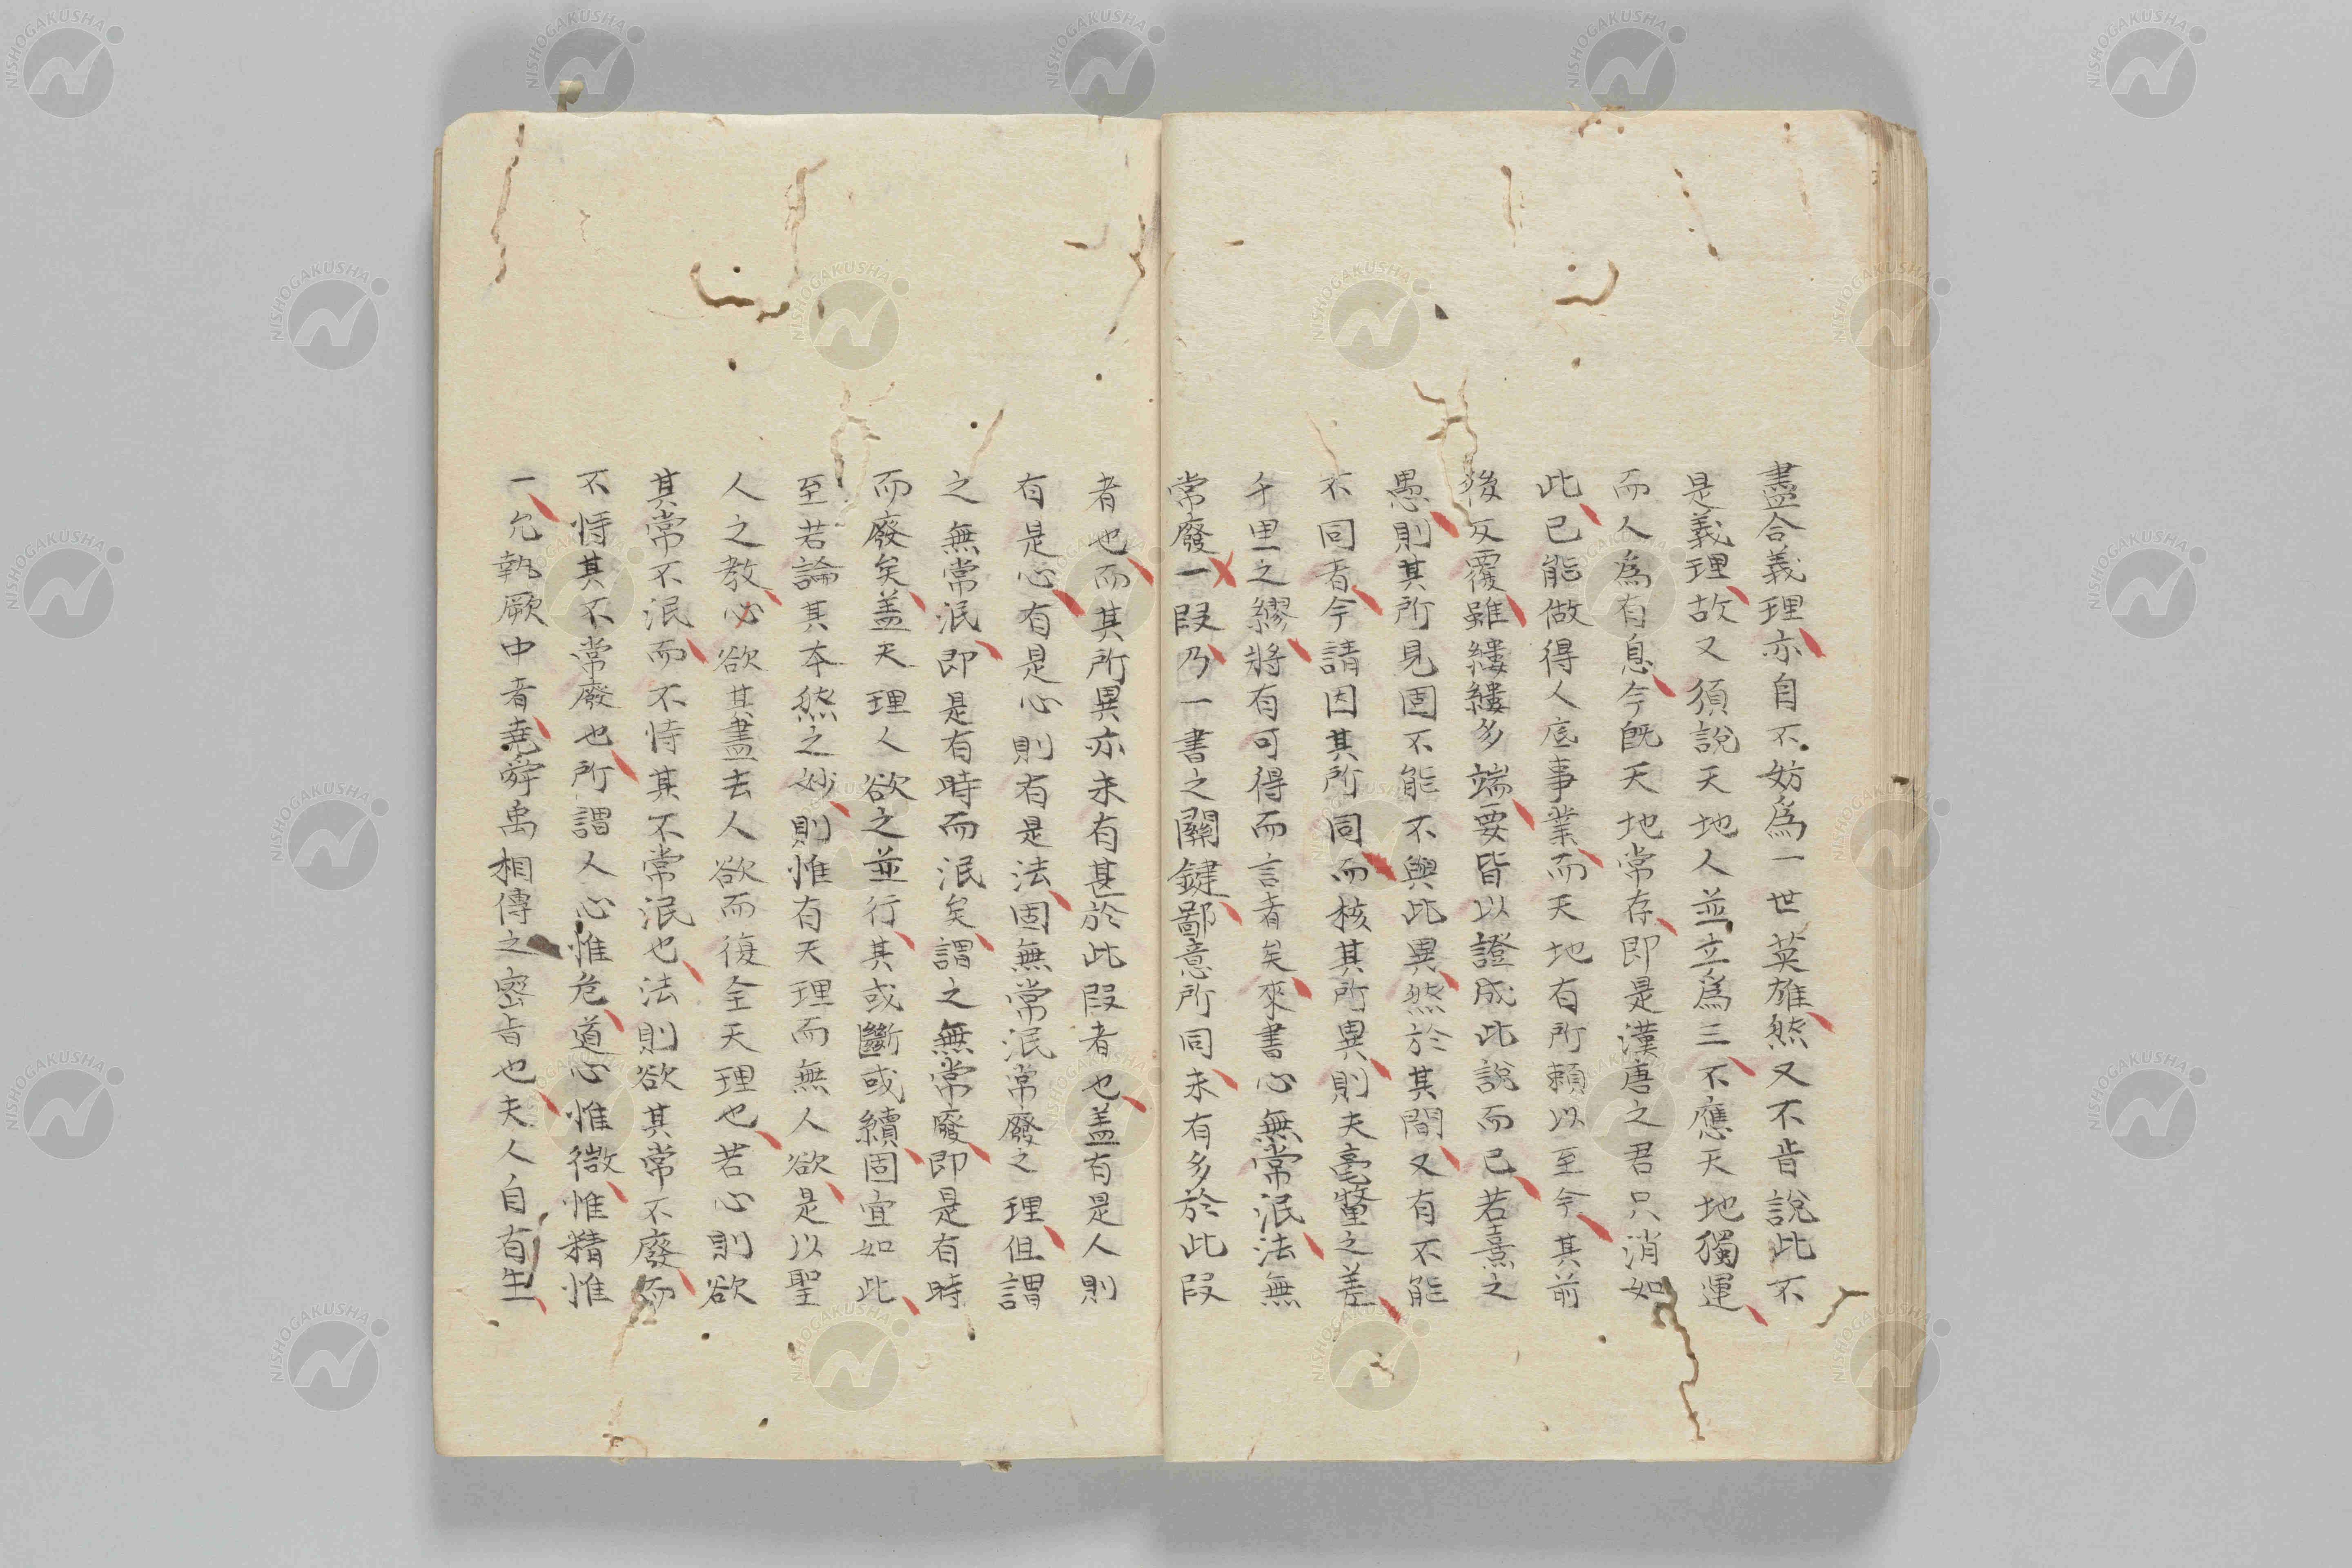 盡合義理亦自不妨爲一世英雄然又不肯說此不
是義理故又須說天地人並立爲三不應天地獨運
而人爲有息今既天地常存即是漢唐之君只消如
此已能做得人底事業而天地有所賴以至今其前
後反覆雖縷縷多端要皆以證成此說而已若熹之
愚則其所見固不能不與此異然於其間又有不能
不同者今請因其所同而核其所異則夫毫釐之差
千里之繆將有可得而言者矣來書心無常泯法無
常廢一段乃一書之關鍵鄙意所同未有多於此段
者也而其所異亦未有甚於此段者也盖有是人則
有是心有是心則有是法固無常泯常廢之理但謂
之無常泯即是有時而泯矣謂之無常廢即是有時
而廢矣盖天理人欲之並行其或斷或續固宜如此
至若論其本然之妙則惟有天理而無人欲是以聖
人之教必欲其盡去人欲而復全天理也若心則欲
其常不泯而不恃其不常泯也法則欲其常不廢而
不恃其不常廢也所謂人心惟危道心惟微惟精惟
一允執厥中者堯舜禹相傳之密旨也夫人自有生
NISHOGAKUSHA